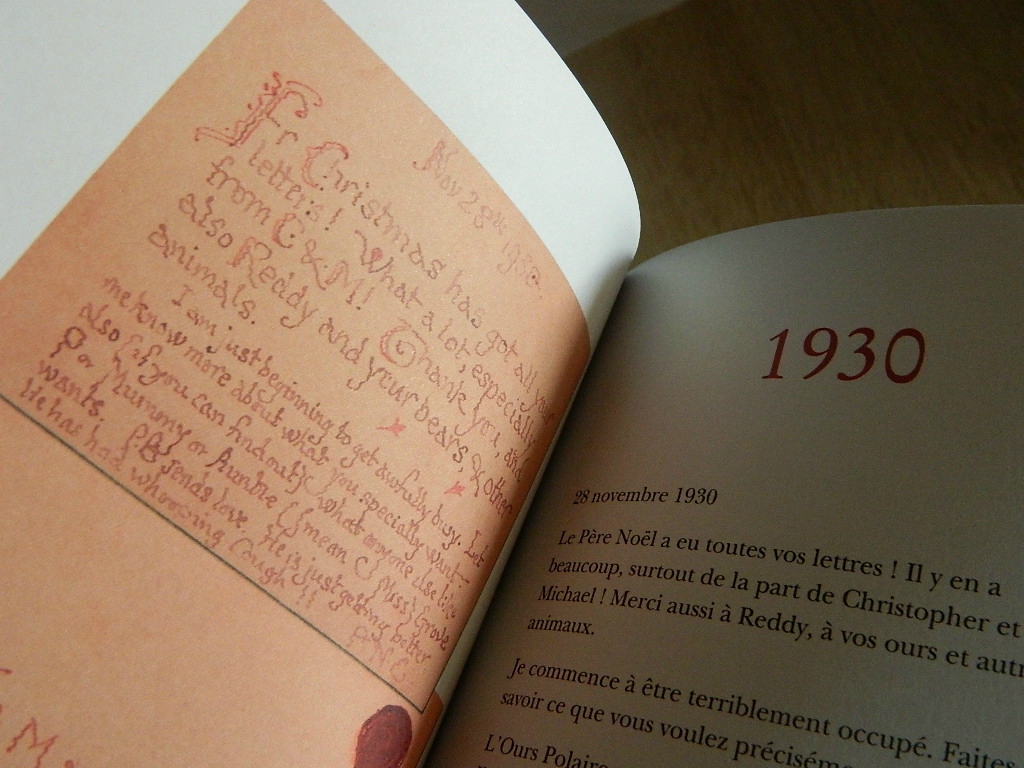 Nov 28th 1930.
Fr Christmas has got all your
letters! What a lot, especially
from C & M! Thank you, and
also Reddy and your bears, & other
animals.
I am just beginning to get awfully busy. Let
me know more about what you specially want —
also if you can find out what anyone else like
for Mummy or Auntie (I mean Miss) Grove
wants. PB sends love. He is just getting better
He has had whooping Cough!!
FNC
M
1930
28 novembre 1930
Le Père Noël a eu toutes vos lettres ! Il y en a
beaucoup, surtout de la part de Christopher et
Michael ! Merci aussi à Reddy, à vos ours et autr
animaux.
Je commence à être terriblement occupé. Faites
savoir ce que vous voulez précisém
L'Ours Polaire